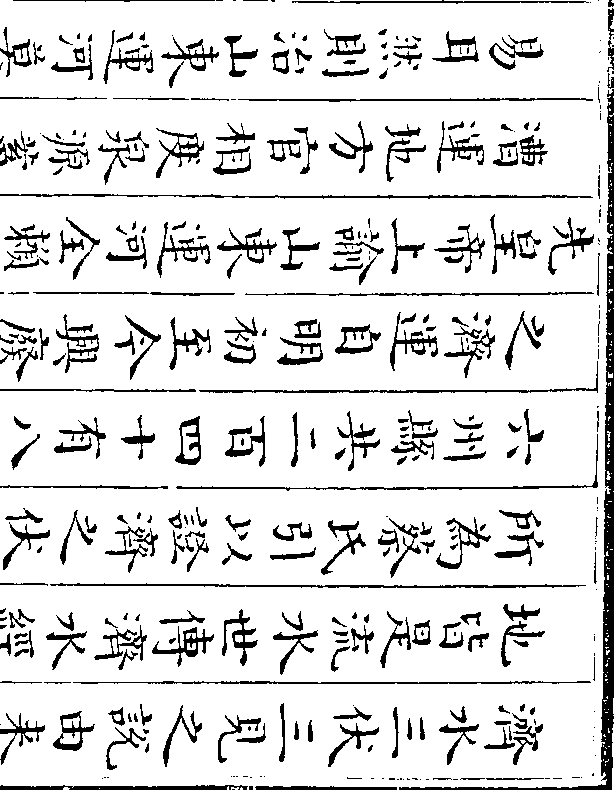 濟水三伏三見之說由來
地皆是流水世傳濟水經
所為蔡氏引以證濟之伏
六州縣共二百四十有八
之濟運自明初至今興廢
先皇帝上諭山東運河全賴
漕運地方官相度泉源蓄
易耳然則治山東運河莫